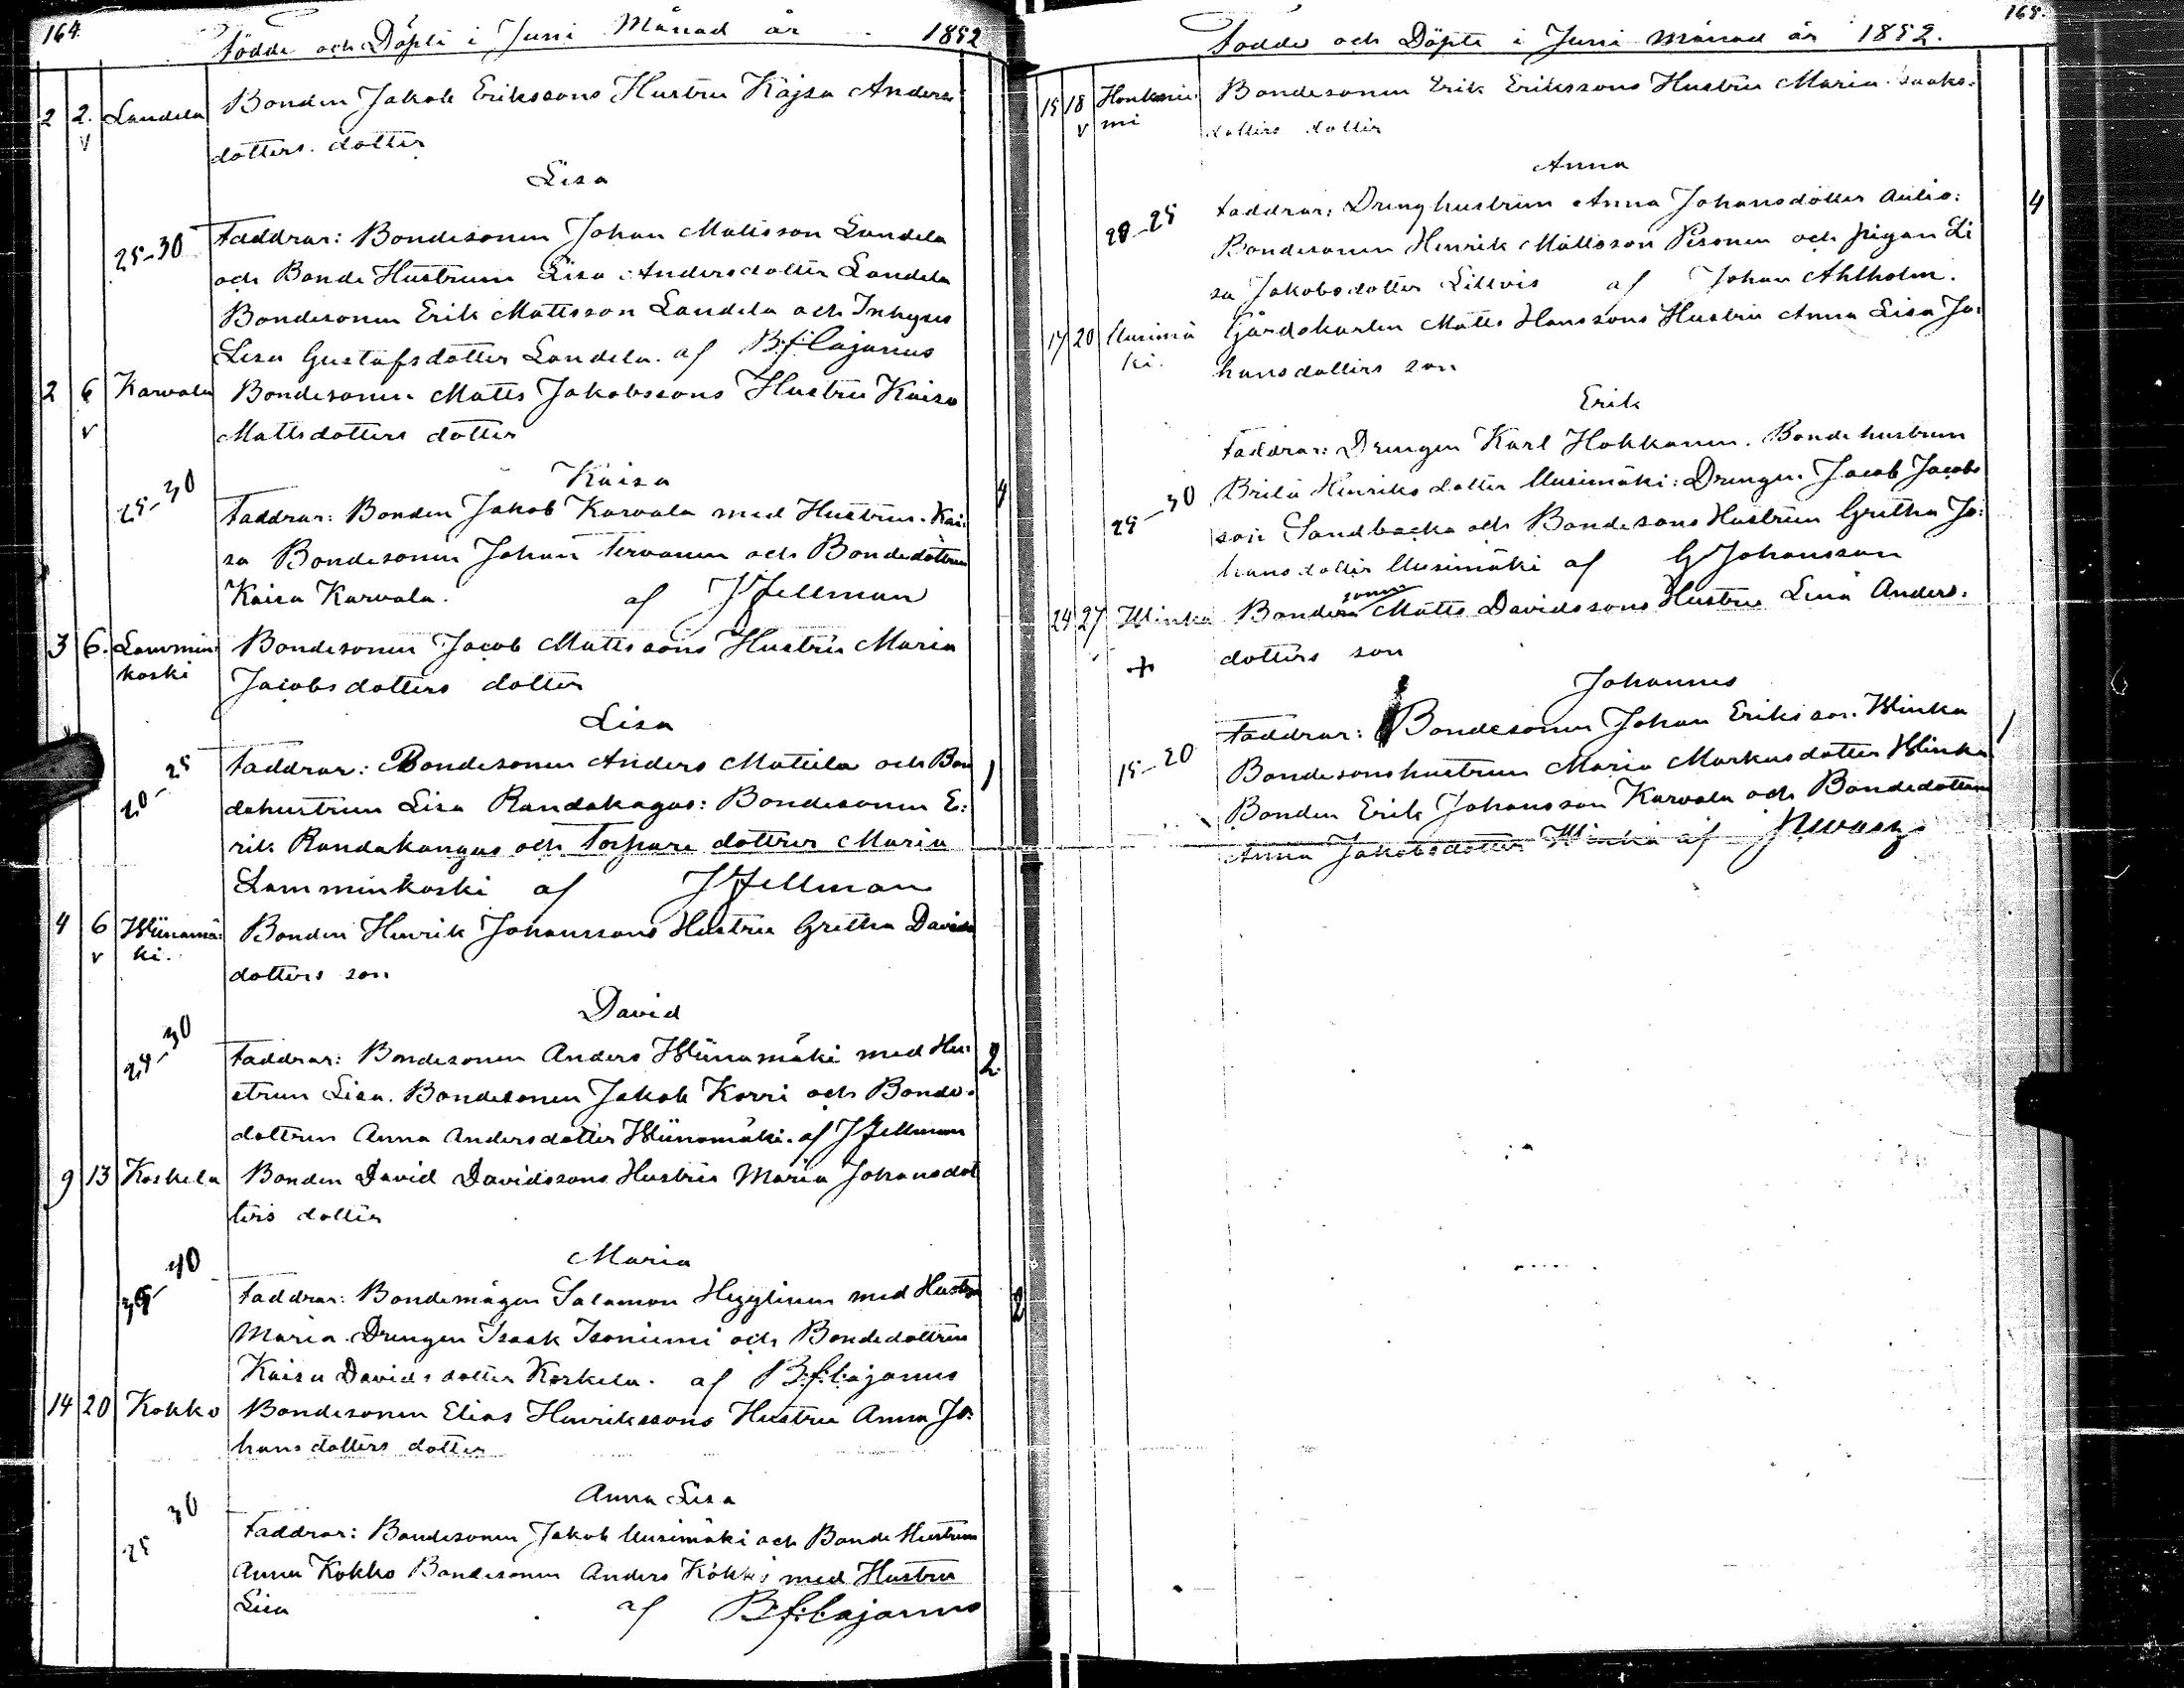 164.
Födde och Döpte i Juni Månad år 1852
2 2. Landela Bonden Jakob Erikssons Hustru Kajsa Anders
v dotters dotter
Lisa
25-30 Faddrar: Bondesonen Johan Mattsson Landela
och Bonde Hustrun Lisa Andersdotter Landela
Bondesonen Erik Mattsson Landela och Inhyses
Lisa Gustafsdotter Landela. af B.f. Cajanus
2 6 Karvala Bondesonen Matts Jakobssons Hustru Kaisa
v Mattsdotters dotter
Kaisa
25-30 Faddrar: Bonden Jakob Karvala med Hustru Kai: 4
sa Bondesonen Johan Tervanen och Bondedottren
Kaisa Karvala. af J Fellman
3 6. Lammin Bondesonen Jacob Mattssons Hustru Maria
koski Jacobsdotters dotter
Lisa
20-25 Faddrar: Bondesonen Anders Mattila och Bon 1
dehustrun Lisa Randakagas: Bondesonen E:
rik Randakangas och Torpare dottren Maria
Lamminkoski af J Fellman
4 6 Wiinamä: Bonden Henrik Johanssons Hustru Gretha Davids
v ki. dotters son
David
24-30 Faddrar: Bondesonen Anders Wiinamäki med Hu: 2
strun Lisa. Bondesonen Jakob Korri och Bonde:
dottren Anna Andersdotter Wiinamäki. af J Fellman
9 13 Koskela Bonden David Davidssons Hustru Maria Johansdot
ters dotter
Maria
35-40 Faddrar: Bondemågen Salamon Hyylinen med Hustru 2
Maria. Drengen Isaak Isoniemi och Bondedottren
Kaisa Davidsdotter Koskela. af B.f. Cajanus
14 20 Kokko Bondesonen Elias Henrikssons Hustru Anna Jo:
hansdotters dotter
Anna Lisa
25 30 Faddrar: Bondesonen Jakob Uusimäki och Bonde Hustrun
Anna Kokko Bondesonen Anders Kokko med Hustru
Lisa af B.f. Cajanus
165.
Födde och Döpte i Juni månad år 1852.
15 18 Honkanie: Bondesonen Erik Erikssons Hustru Maria Isaks:
v mi dotters dotter
Anna
20-25 Faddrar: Dreng hustrun Anna Johansdotter Aulio: 4
Bondesonen Henrik Mattsson Pesonen och pigan Li
sa Jakobsdotter Lillvis af Johan Ahlholm.
17 20 Uusimä Gårdskarlen Matts Hanssons Hustru Anna Lisa Jo:
ki. hansdotters son
Erik
Faddrar: Drengen Karl Hokkanen. Bonde hustrun
25-30 Brita Henriksdotter Uusimäki: Drengen Jacob Jacobs
son Sandbacka och Bondesons Hustrun Gretha Jo:
hansdotter Uusimäki af G Johansson
24 27 Winka Bondesonen Matts Davidssons Hustru Lena Anders:
+ dotters son
Johannes
Faddrar: Bondesonen Johan Eriksson Winka 1
15-20 Bondesonshustrun Maria Markusdotter Winka
Bonden Erik Johansson Karvala och Bondedottren
Anna Jakobsdotter Winka af